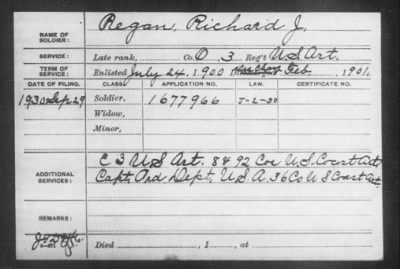 NAME OF SOLDIER: Regan, Richard J.
SERVICE: Late rank, Co. O, 3 Reg't U.S. Art.
TERM OF SERVICE: Enlisted July 24, 1900 Discharged Feb. , 1901.
DATE OF FILING. CLASS. APPLICATION NO. LAW. CERTIFICATE NO.
1930 Sep. 29 Soldier, 1677966 J-2-30
Widow,
Minor,
ADDITIONAL SERVICES: C 3 U.S. Art. 84 92 Cos U.S. Coast Art
Capt. Ord. Dept. U.S.A. 36 Co U S Coast Art.
REMARKS:
Died , 1 , at